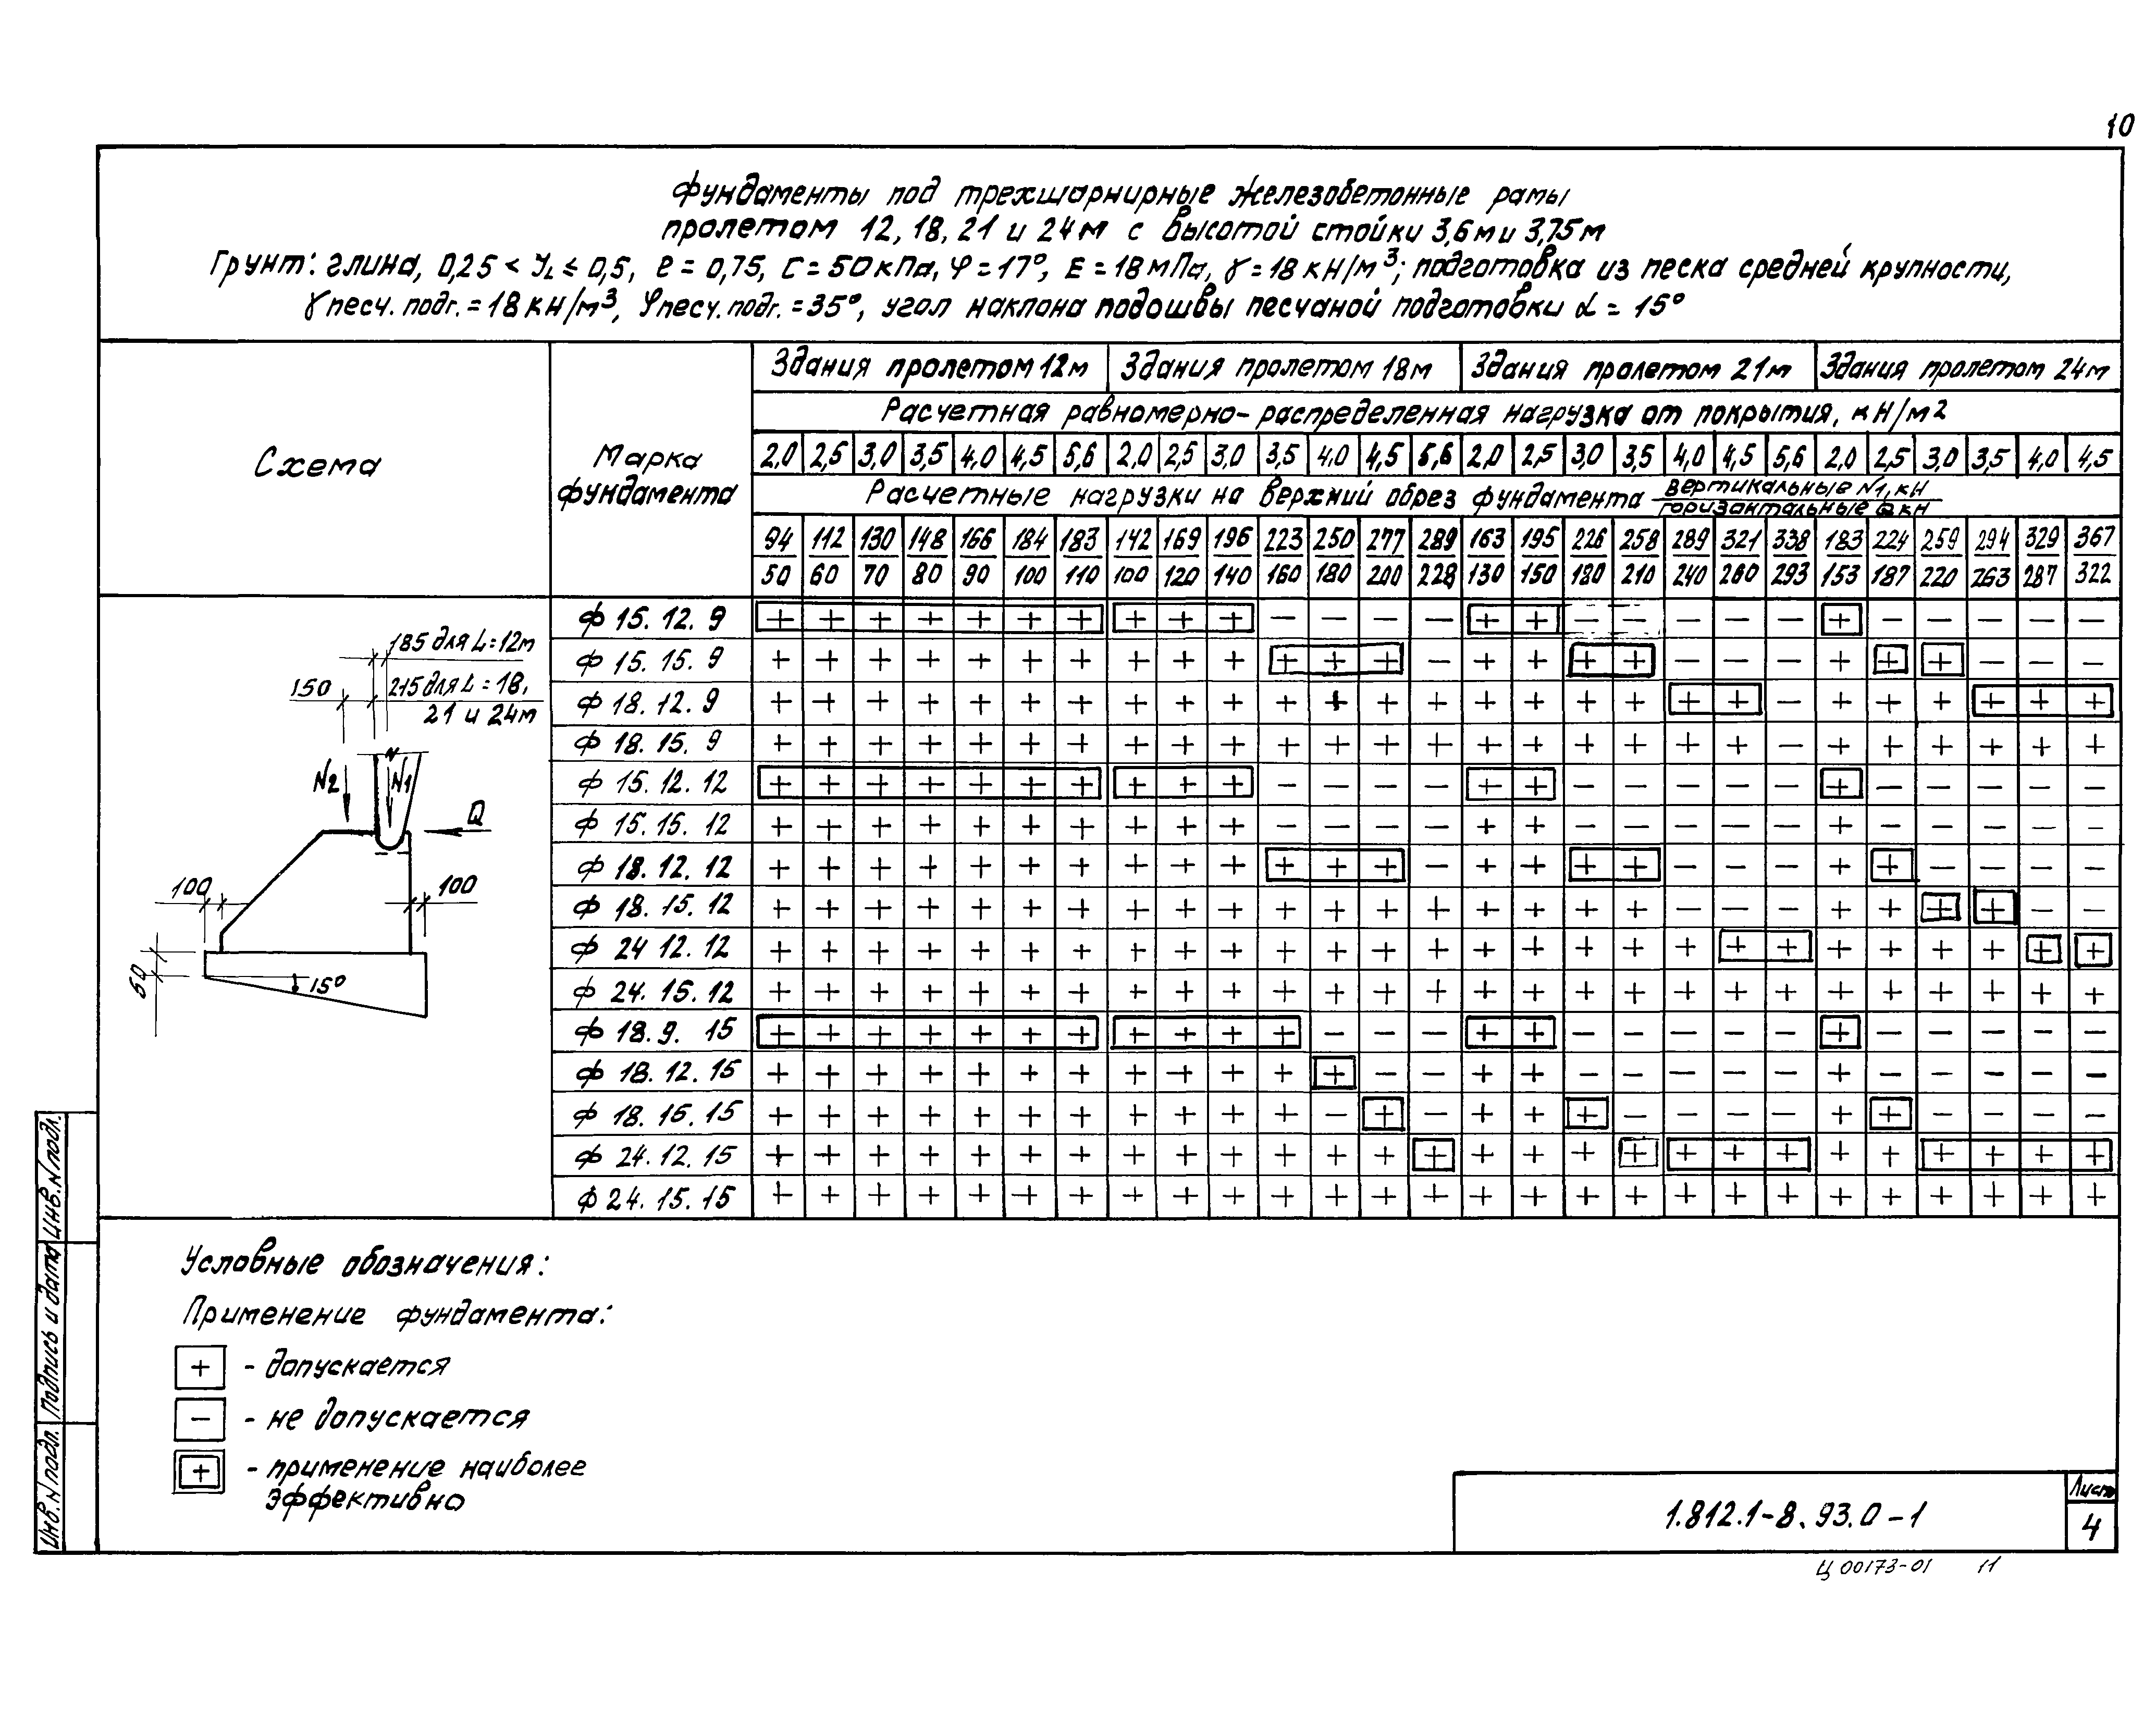 10
Фундаменты под трехшарнирные железобетонные рамы
пролетом 12, 18, 21 и 24 м с высотой стойки 3,6 м и 3,75 м
Грунт: глина, 0,25 < YL ≤ 0,5, e = 0,75, C = 50 кПа, φ = 17°, E = 18 мПа, γ = 18 кН/м³; подготовка из песка средней крупности,
γ песч. подг. = 18 кН/м³, φ песч. подг. = 35°, угол наклона подошвы песчаной подготовки α = 15°
Схема
Марка фундамента
Здания пролетом 12м Здания пролетом 18м Здания пролетом 21м Здания пролетом 24м
Расчетная равномерно-распределенная нагрузка от покрытия, кН/м2
2,0 2,5 3,0 3,5 4,0 4,5 5,6 2,0 2,5 3,0 3,5 4,0 4,5 5,6 2,0 2,5 3,0 3,5 4,0 4,5 5,6 2,0 2,5 3,0 3,5 4,0 4,5
Расчетные нагрузки на верхний обрез фундамента вертикальные N1, кН
горизонтальные Q кН
94 112 130 148 166 184 183 142 169 196 223 250 277 289 163 195 226 258 289 321 338 183 224 259 294 329 367
50 60 70 80 90 100 110 100 120 140 160 180 200 228 130 150 180 210 240 260 293 153 187 220 263 287 322
ф 15. 12. 9 + + + + + + + + + + − − − − + + − − − − − + − − − − −
ф 15. 15. 9 + + + + + + + + + + + + + − + + + + − − − + + + − − −
ф 18. 12. 9 + + + + + + + + + + + + + + + + + + + + − + + + + + +
ф 18. 15. 9 + + + + + + + + + + + + + + + + + + + + − + + + + + +
ф 15. 12. 12 + + + + + + + + + + − − − − + + − − − − − + − − − − −
ф 15. 15. 12 + + + + + + + + + + − − − − + + − − − − − + − − − − −
ф 18. 12. 12 + + + + + + + + + + + + + − + + + + − − − + + − − − −
ф 18. 15. 12 + + + + + + + + + + + + + + + + + + − − − + + + + − −
ф 24 12. 12 + + + + + + + + + + + + + + + + + + + + + + + + + + +
ф 24. 15. 12 + + + + + + + + + + + + + + + + + + + + + + + + + + +
ф 18. 9. 15 + + + + + + + + + + + − − − + + − − − − − + − − − − −
ф 18. 12. 15 + + + + + + + + + + + + − − + + − − − − − + − − − − −
ф 18. 15. 15 + + + + + + + + + + + − + − + + + − − − − + + − − − −
ф 24. 12. 15 + + + + + + + + + + + + + + + + + + + + + + + + + + +
ф 24. 15. 15 + + + + + + + + + + + + + + + + + + + + + + + + + + +
185 для L = 12м
150
215 для L = 18,
21 и 24м
N2
N1
Q
100
100
50
15°
Условные обозначения:
Применение фундамента:
+ - допускается
− - не допускается
+ - применение наиболее
эффективно
Инв. N подл. Подпись и дата Инв. N подл.
1.812.1-8. 93.0 - 1
Лист
4
Ц 00173-01 11